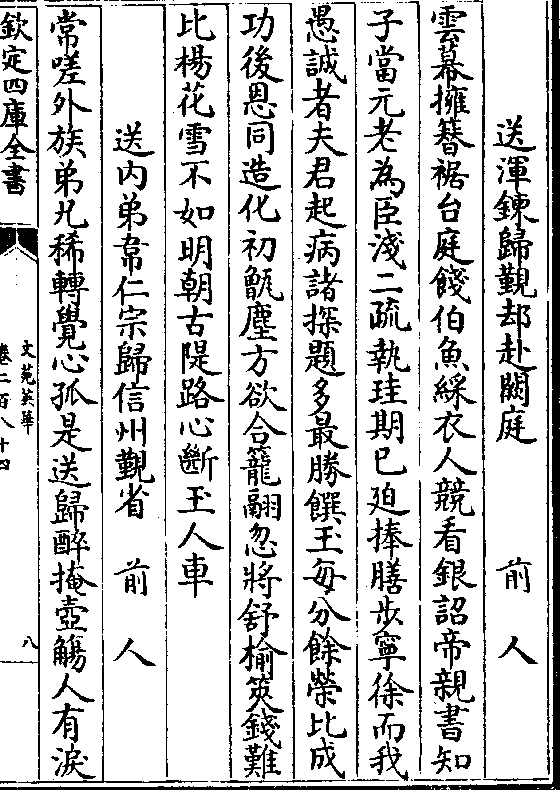 送渾鍊歸覲却赴闕庭　前　人
雲幕擁簪裾台庭餞伯魚綵衣人競看銀詔帝親書知
子當元老為臣淺二疏執珪期已迫捧膳步寧徐而我
愚誠者夫君起病諸探題多最勝饌玉每分餘榮比成
功後恩同造化初甑塵方欲合籠翮忽將舒榆莢錢難
比楊花雪不如明朝古隄路心斷玉人車
送内弟韋仁宗歸信州覲省　前　人
常嗟外族弟兄稀轉覺心孤是送歸醉掩壺觴人有淚
欽定四庫全書
文苑英華
卷二百八十四
八